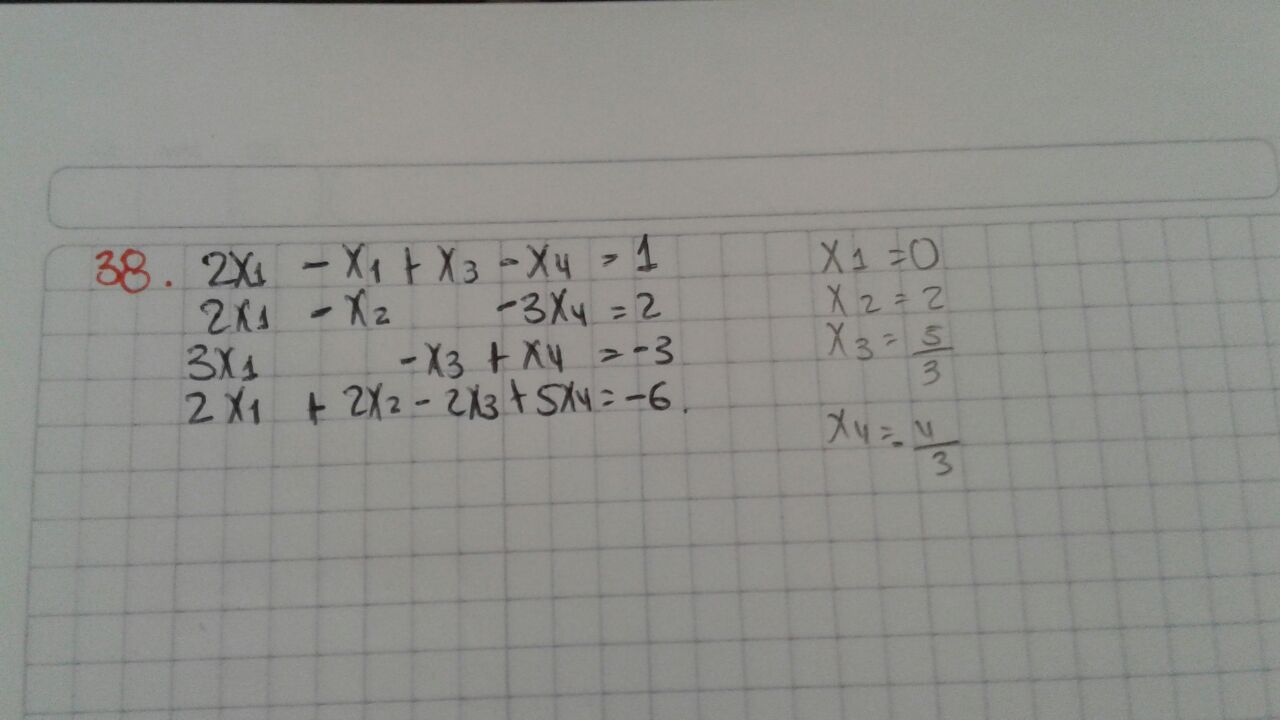 38. 2X1 - X1 + X3 - X4 = 1
2X1 - X2 -3X4 = 2
3X1 -X3 + X4 = -3
2X1 + 2X2 - 2X3 + 5X4 = -6.
X1 = 0
X2 = 2
X3 = 5/3
X4 = - 4/3